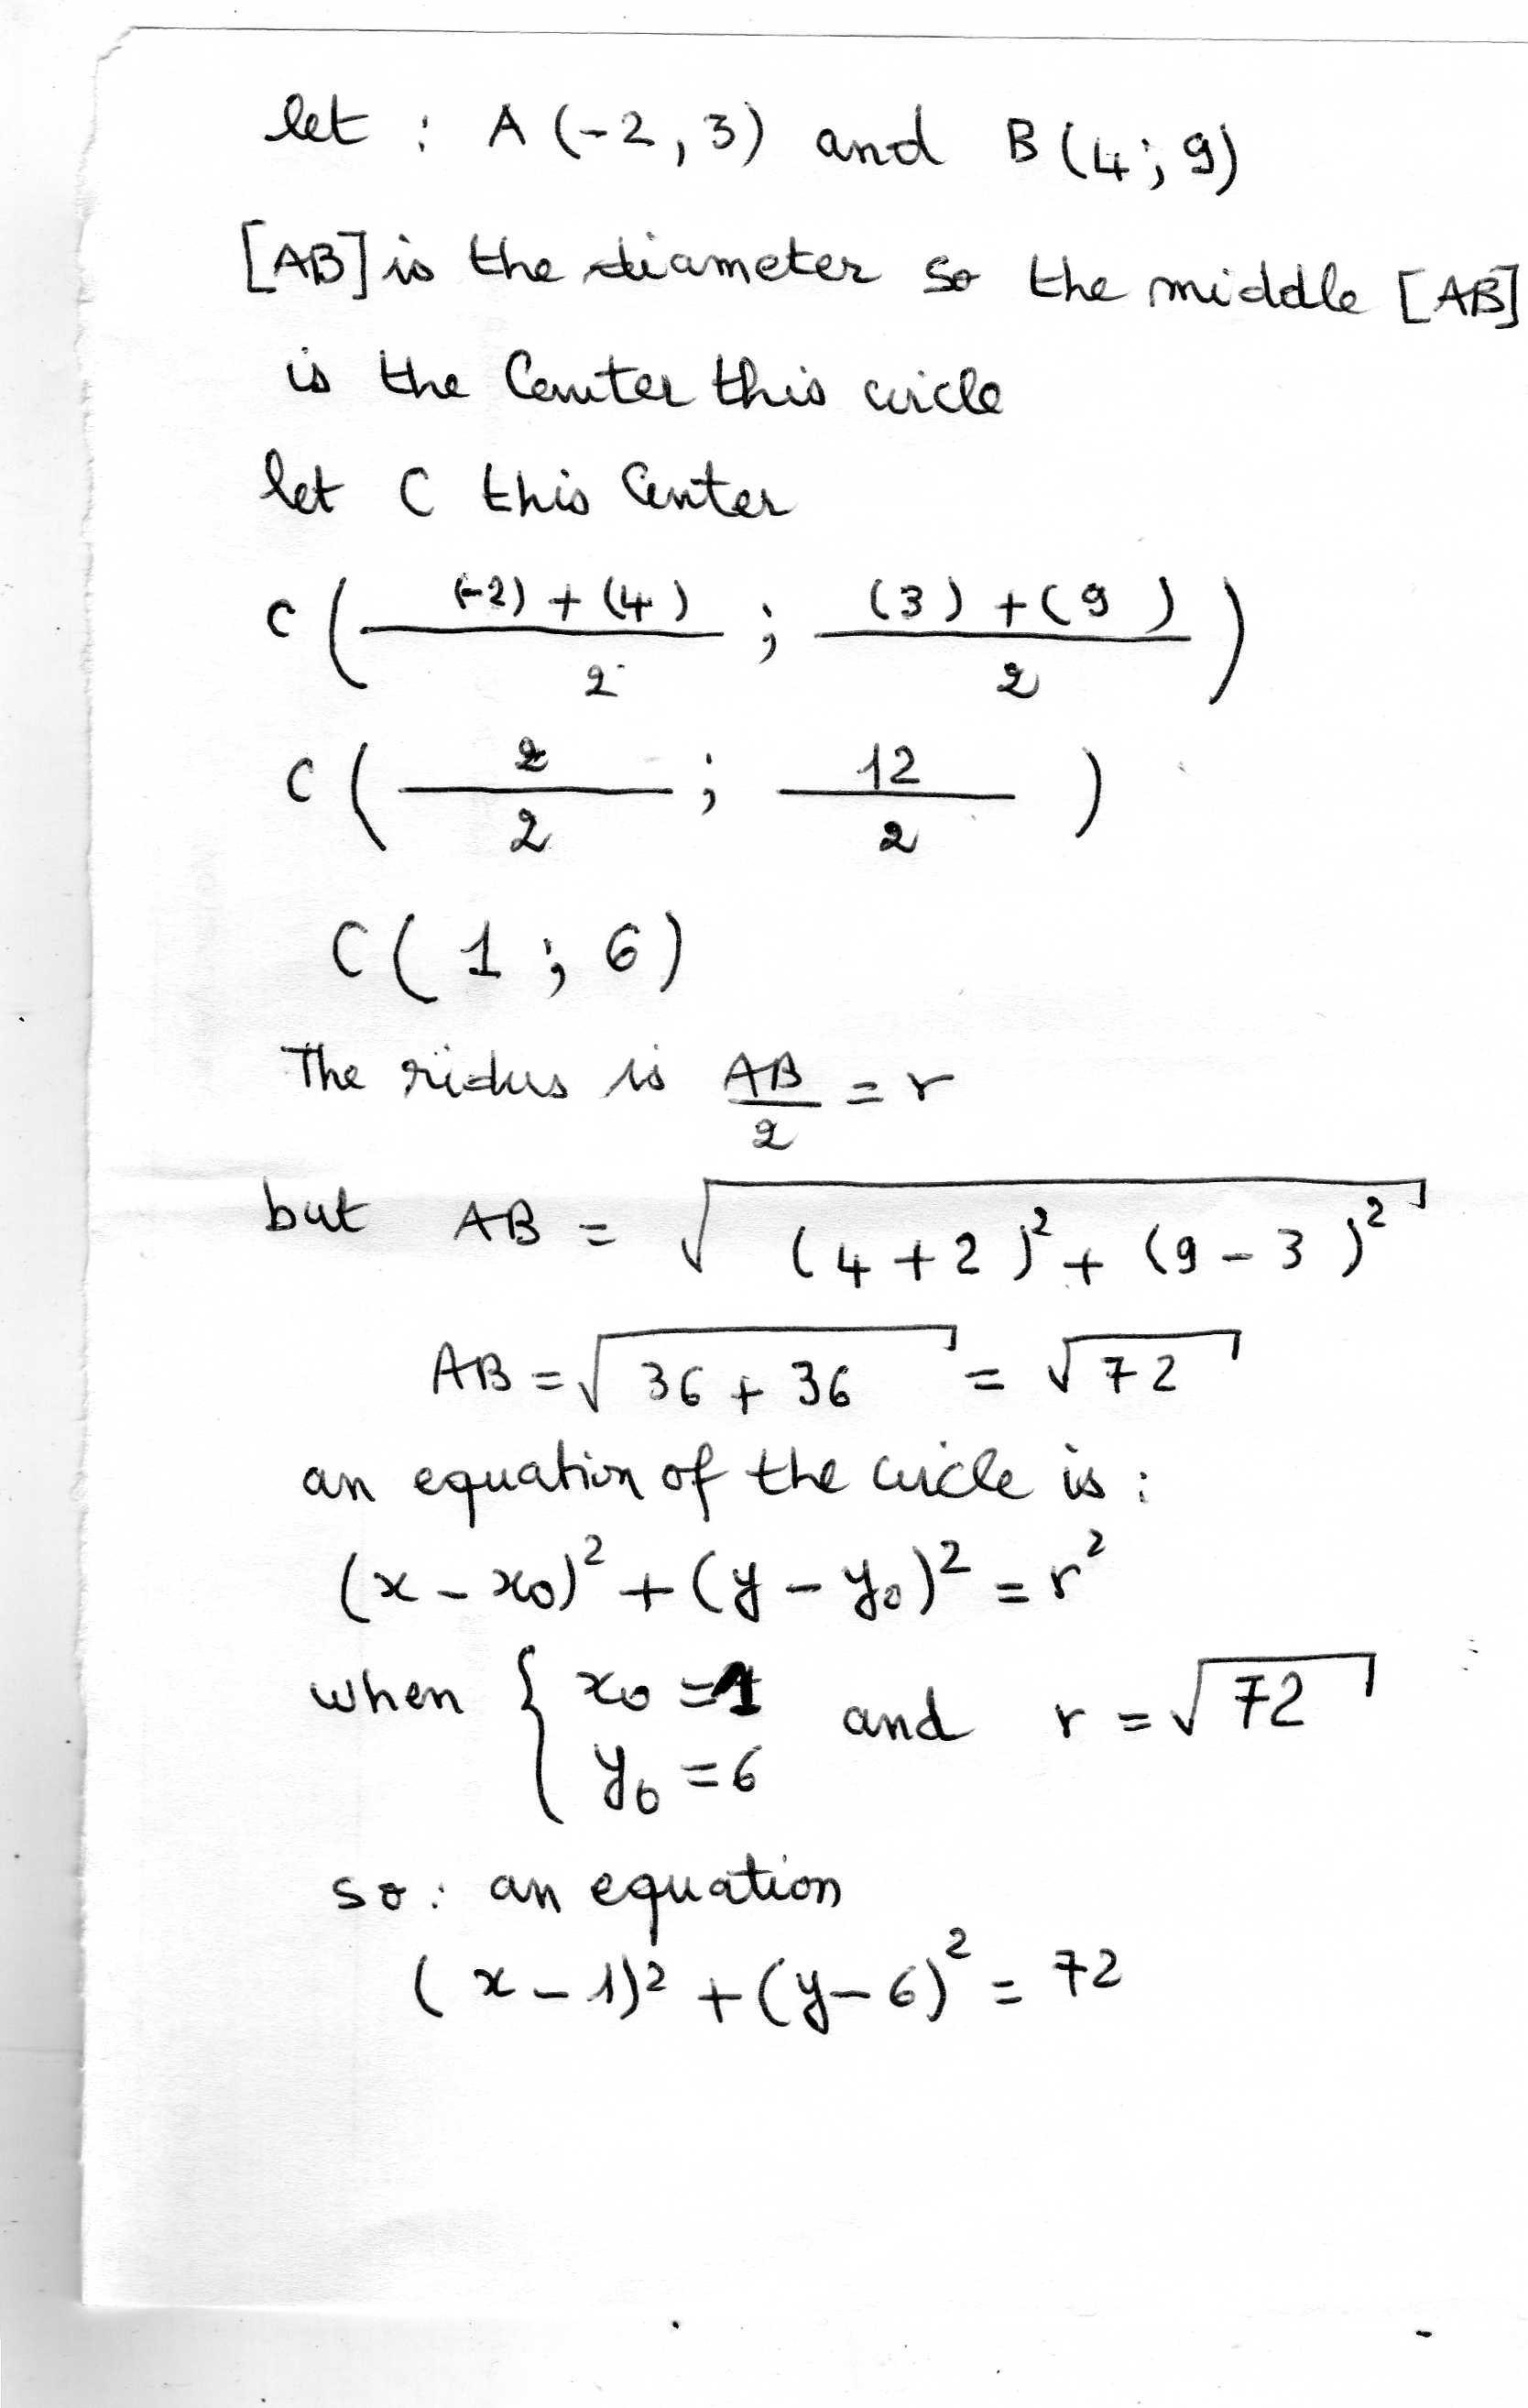 let : A (-2, 3) and B (4; 9)
[AB] is the diameter so the middle [AB]
is the Center this circle
let C this Center
C ( (-2) + (4) / 2 ; (3) + (9) / 2 )
C ( 2 / 2 ; 12 / 2 )
C ( 1 ; 6 )
The ridus is AB / 2 = r
but AB = √( (4 + 2)² + (9 - 3)² )
AB = √(36 + 36) = √72
an equation of the circle is :
(x - x₀)² + (y - y₀)² = r²
when { x₀ = 1 and r = √72
y₀ = 6
so : an equation
(x - 1)² + (y - 6)² = 72